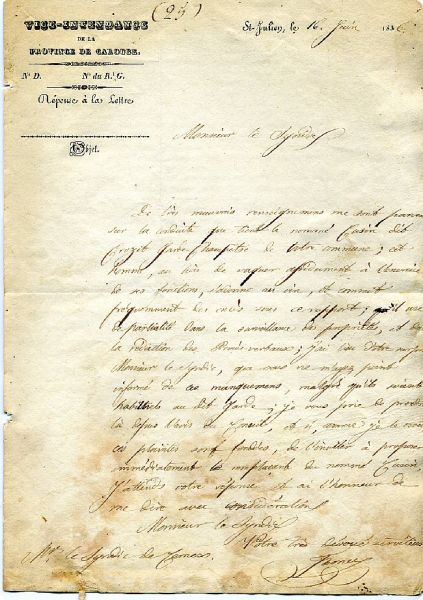 (25)
VICE-INTENDANCE
DE LA
PROVINCE DE CAROUGE.
N.º D. N.º du R.l G.
Réponse à la Lettre
Objet.
St-Julien, le 16 Juin 1836
Monsieur le Syndic
De très mauvais renseignemens me sont parvenus
sur la conduite que tient le nommé Cusin dit
Crozet Garde Champêtre de votre commune; cet
homme, au lieu de vaquer assidument à l'exercice
de ses fonctions, s'adonne au vin, et commet
fréquemment des excès sous ce rapport; qu'il use
de partialité dans la surveillance des propriétés, et dans
la rédaction des Procès verbaux; j'ai lieu d'être surpris
Monsieur le Syndic, que vous ne m'ayez point
informé de ces manquemens, malgré qu'ils soient
habituels au dit Garde; je vous prie de prendre
là dessus l'avis du Conseil, et si, comme je le crois
ces plaintes sont fondées, de l'inviter à proposer
immédiatement le remplaçant du nommé Cusin
J'attends votre réponse et ai l'honneur de
me dire avec considération
Monsieur le Syndic
Votre très dévoué serviteur
Mr. le Syndic de